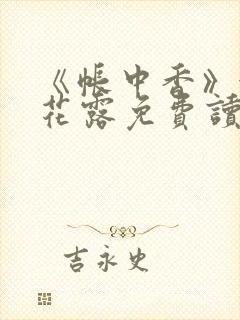 《帳中香》
花露免費讀
吉永史